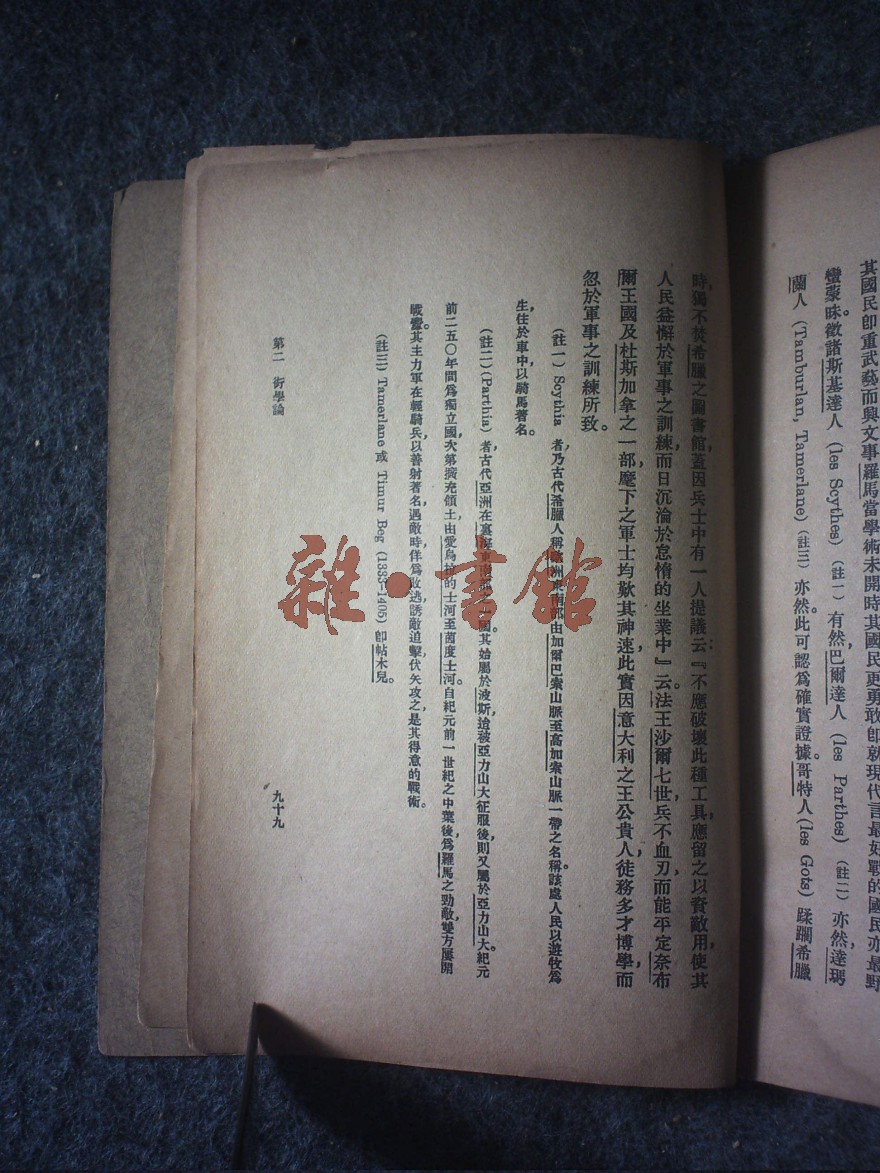 其國民卽重武藝而興文事羅馬當學術未開時其國民更勇敢卽就現代言最好戰的國民亦最野
蠻蒙昧。徵諸斯基達人(les Scythes)(註一)有然巴爾達人(les Parthes)(註二)亦然，達瑪
蘭人(Tamburlan, Tamerlane)(註三)亦然。此可認爲確實證據。哥特人(les Gots)蹂躪希臘
時，獨不焚希臘之圖書館，蓋因兵士中有一人提議云：『不應破壞此種工具，應留之以資敵用，使其
人民益懈於軍事之訓練，而日沉淪於怠惰的坐業中』云。法王沙爾七世，兵不血刃，而能平定奈布
爾王國及杜斯加拿之一部，麾下之軍士均歎其神速，此實因意大利之王公貴人，徒務多才博學，而
忽於軍事之訓練所致。
(註一) Scythia 者，乃古代希臘人稱歐洲東南部由加爾巴索山脈至高加索山脈一帶之名稱。該處人民以遊牧爲
生，住於車中，以騎馬著名。
(註二)(Parthia)者，古代亞洲在裏海東南部之國。其始屬於波斯，迨被亞力山大征服後，則又屬於亞力山大。紀元
前二五〇年間爲獨立國，次第擴充領土，由愛烏拉的士河至茵度士河。自紀元前一世紀之中葉後，爲羅馬之勁敵，雙方屢開
戰釁。其主力軍在輕騎兵，以善射著名，遇敵時佯爲敗逃，誘敵追擊，伏矢攻之，是其得意的戰術。
(註三) Tamerlane 或 Timur Beg (1333-1405) 卽帖木兒。
第二　術學論
九十九
雜·書館